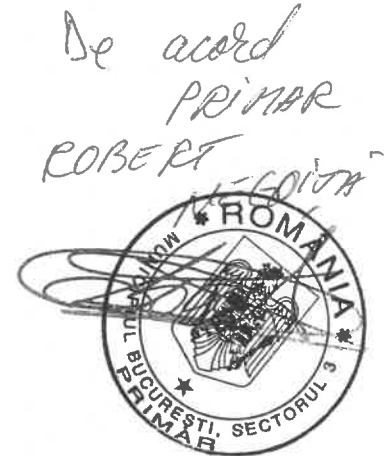 De acord
PRIMAR
ROBERT
NEGOIȚĂ
* ROMÂNIA *
MUNICIPIUL BUCUREȘTI, SECTORUL 3
PRIMAR